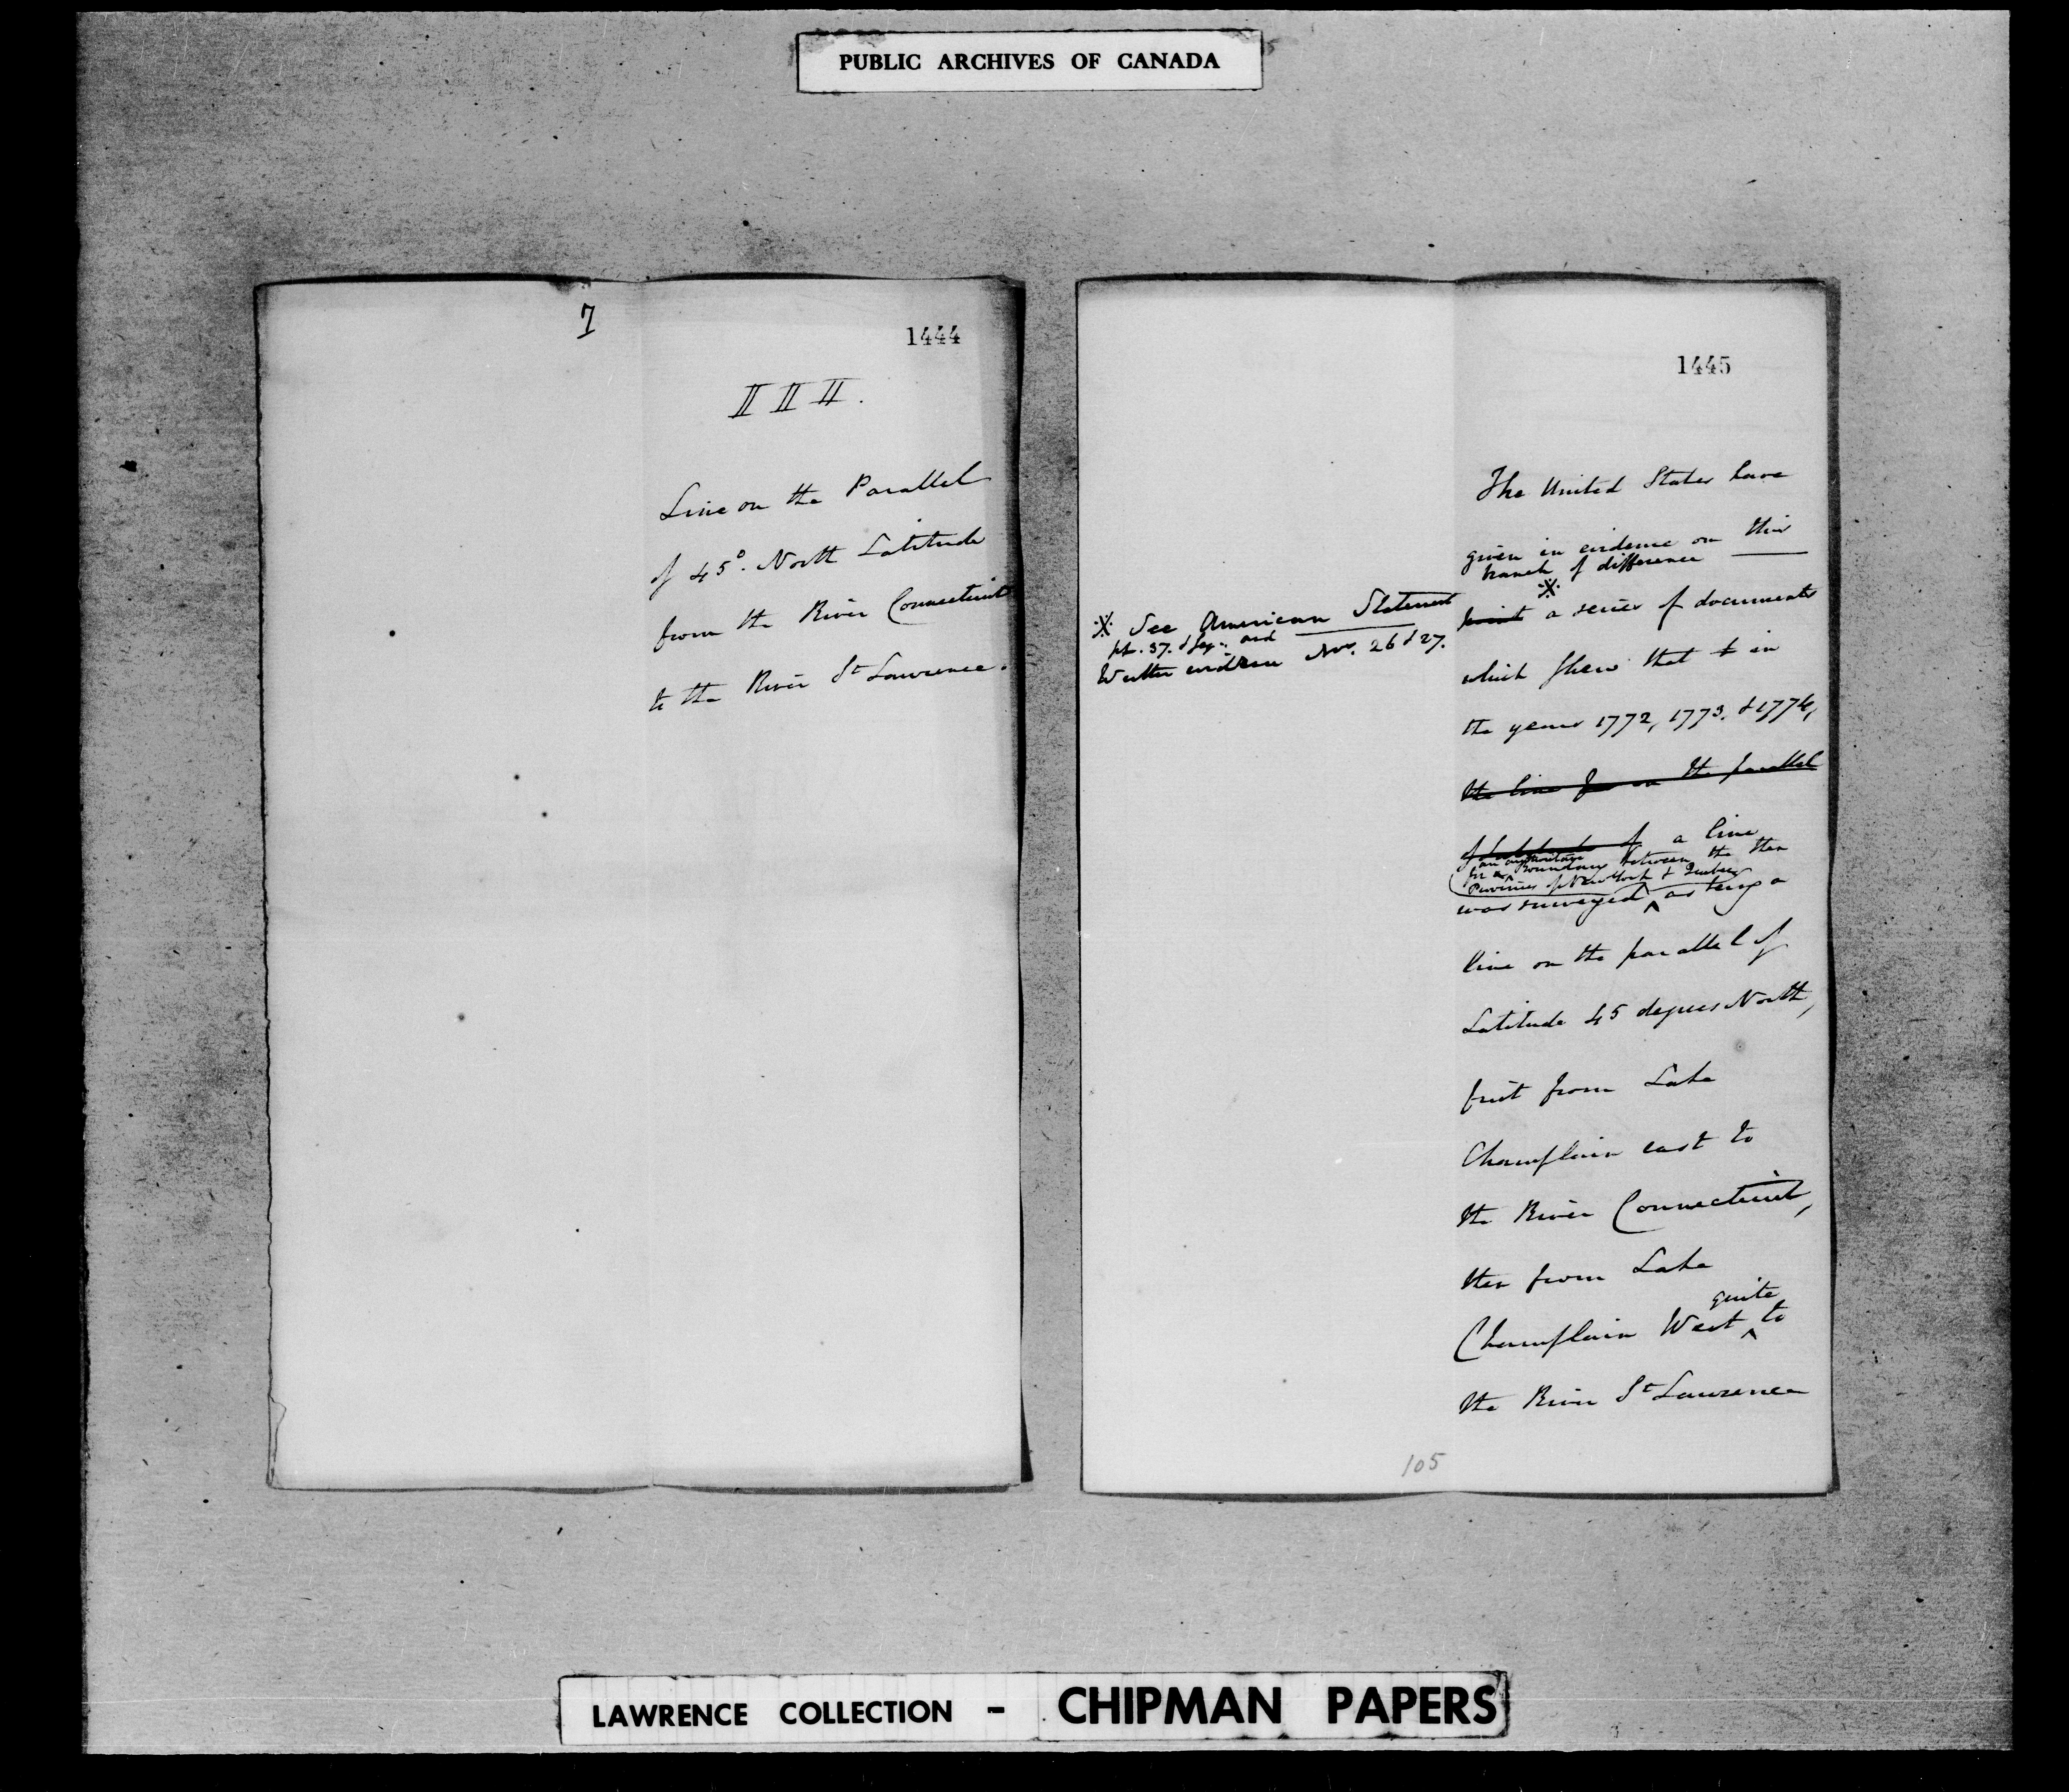 PUBLIC ARCHIVES OF CANADA
7
1444
III.
Line on the Parallel
of 45°. North Latitude
from the River Connecticut
to the River St Lawrence.
1445
The United States have
given in evidence on this
branch of difference
※ a series of documents
※ See American Statement
pp. 37. & seq. and
Written evidence Nos. 26 & 27.
which shew that in
the years 1772, 1773, & 1774,
the line on the parallel
of Latitude of a line
for an Boundary between the then
Provinces of New York & Quebec
was surveyed ^ as being a
line on the parallel of
Latitude 45 degrees North,
first from Lake
Champlain east to
the River Connecticut,
then from Lake
quite
Champlain West ^ to
the River St Lawrence
105
LAWRENCE COLLECTION - CHIPMAN PAPERS